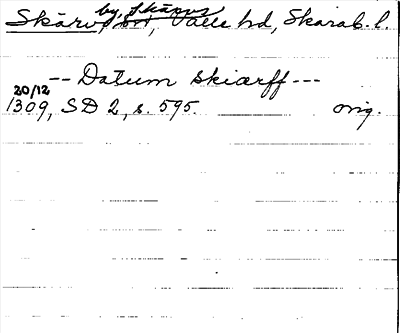 Skärv, by, Skärvs sn, Valle hd, Skarab. l.
-- Datum skiærff ---
20/12
1309, SD 2, s. 595. orig.